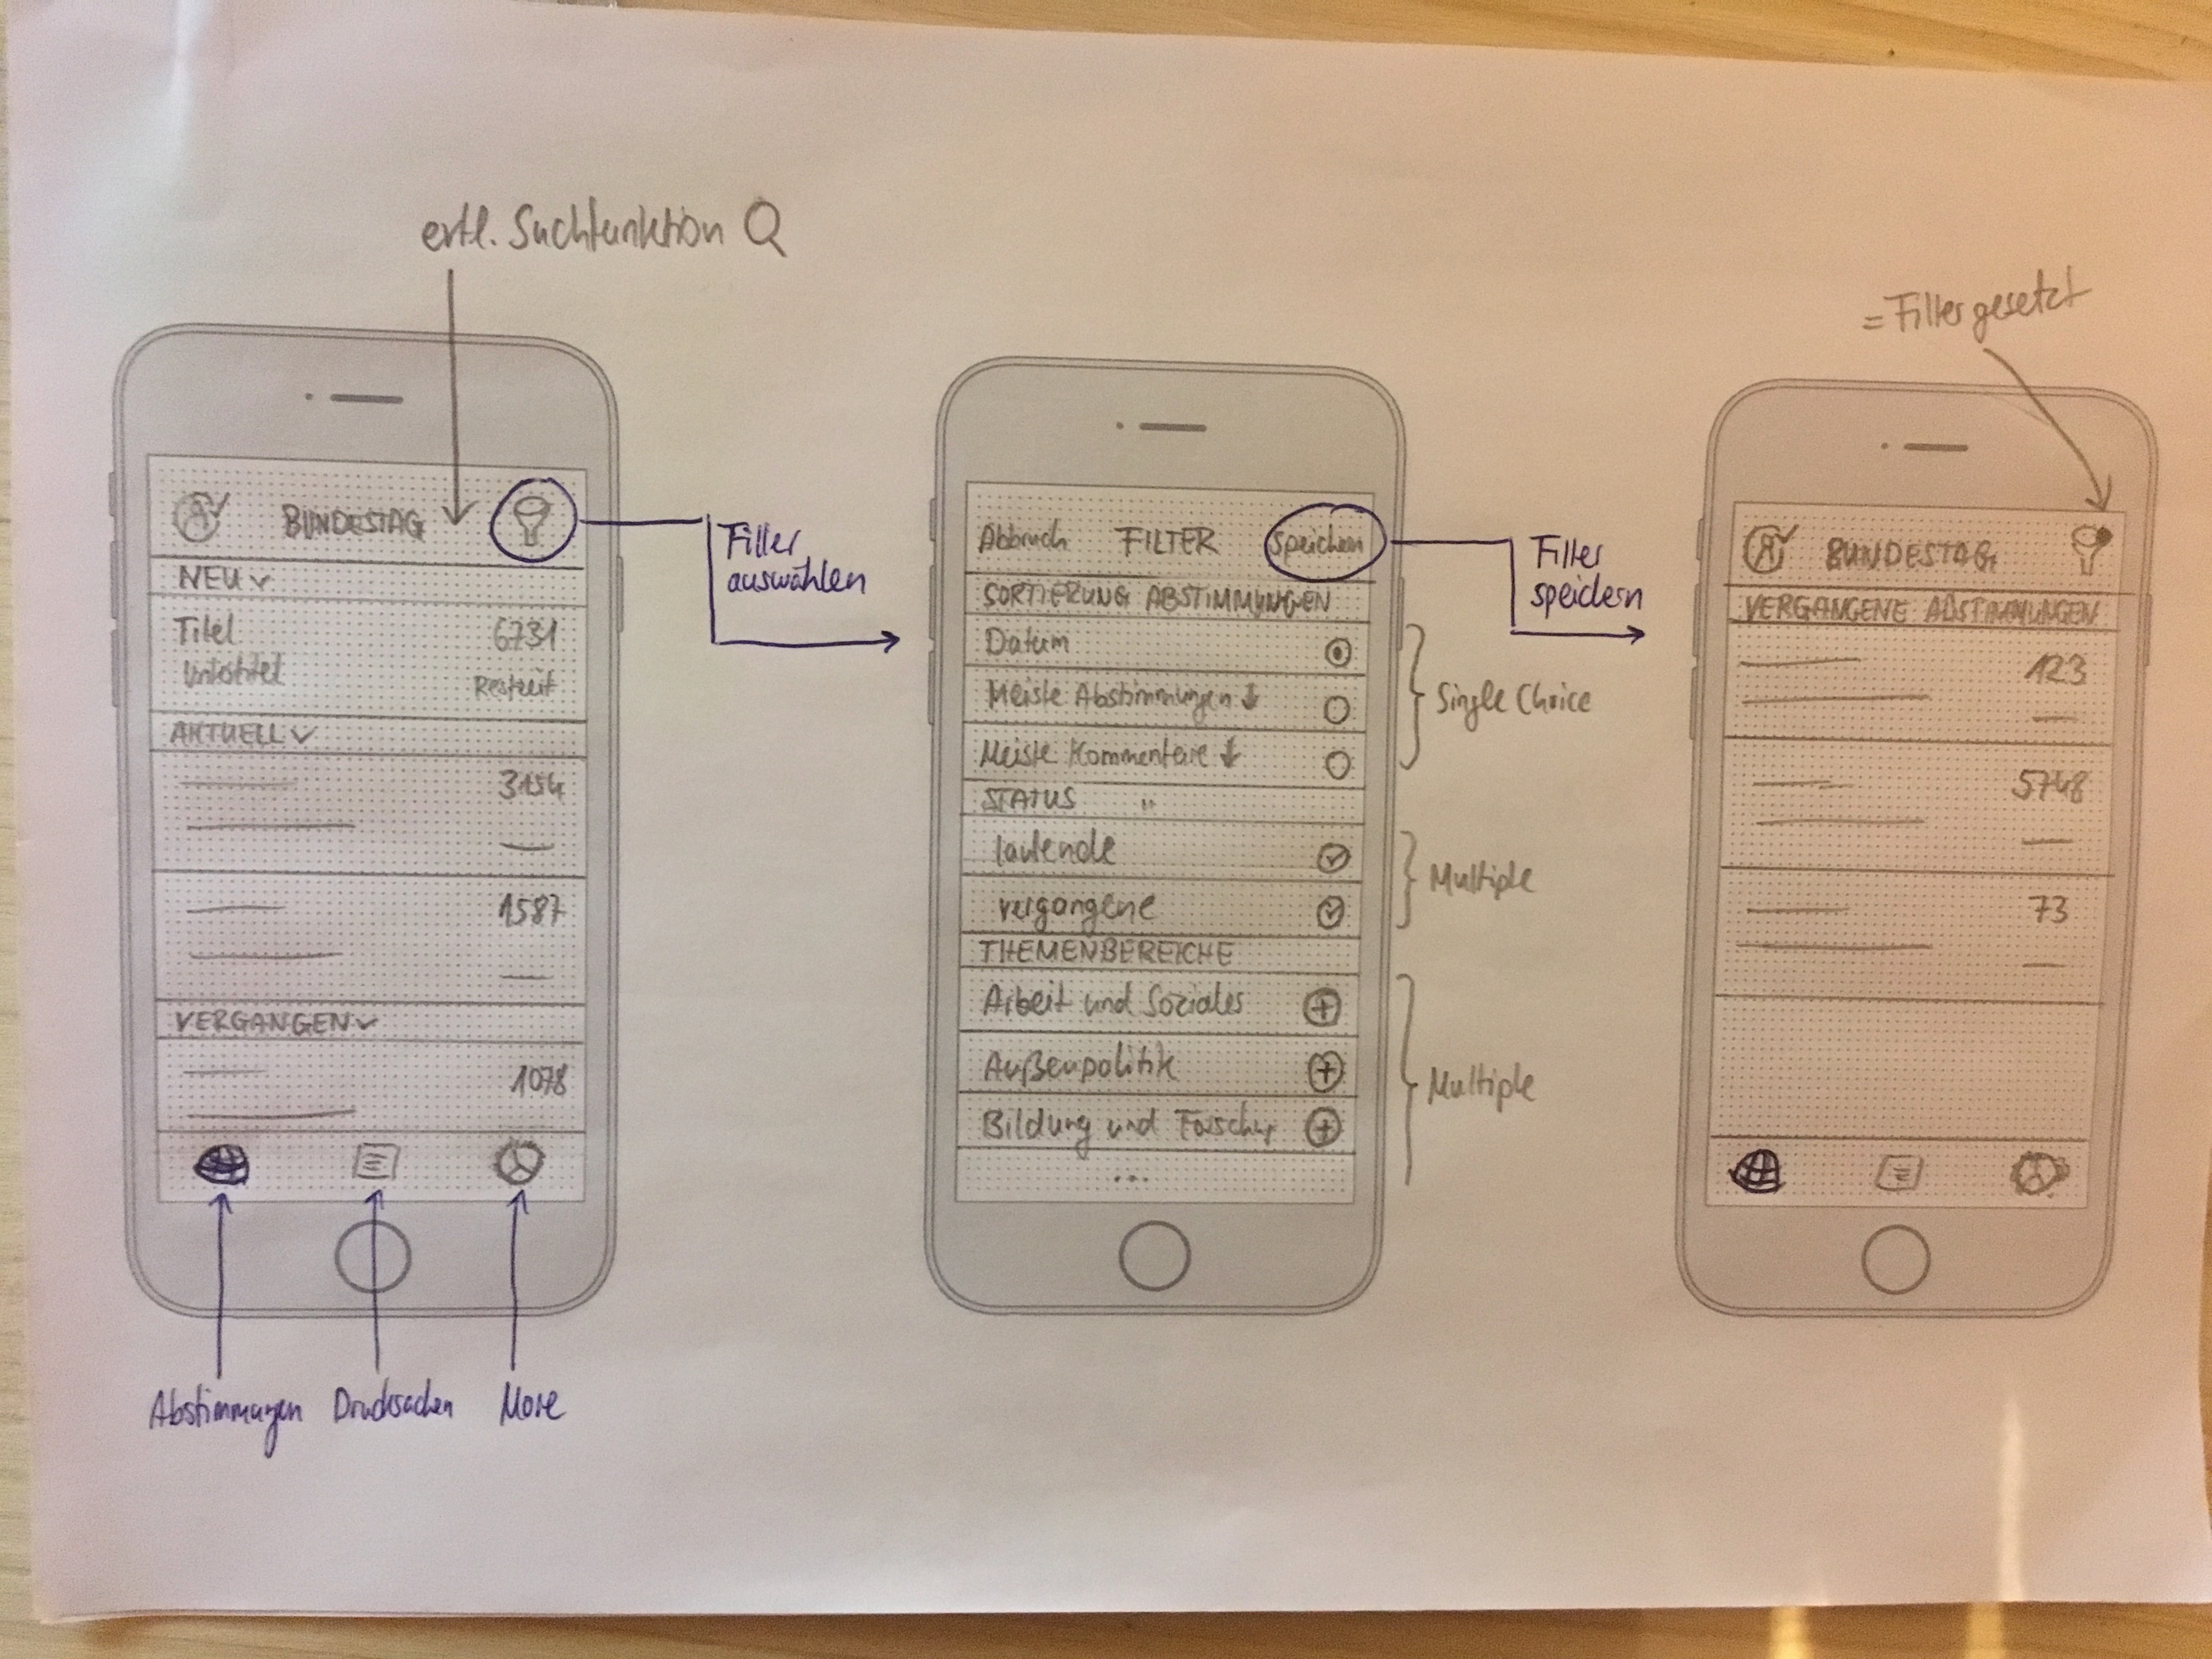 evtl. Suchfunktion
BUNDESTAG
NEU
Titel 6731
Untertitel Restzeit
AKTUELL
3154
1587
VERGANGEN
1078
Abstimmungen Drucksachen More
Filter
auswählen
Abbruch FILTER Speichern
SORTIERUNG ABSTIMMUNGEN
Datum
Meiste Abstimmungen ↓
Meiste Kommentare ↓
Single Choice
STATUS "
laufende
vergangene
Multiple
THEMENBEREICHE
Arbeit und Soziales
Außenpolitik
Bildung und Forschung
...
Multiple
Filter
speichern
= Filter gesetzt
BUNDESTAG
VERGANGENE ABSTIMMUNGEN
123
5748
73